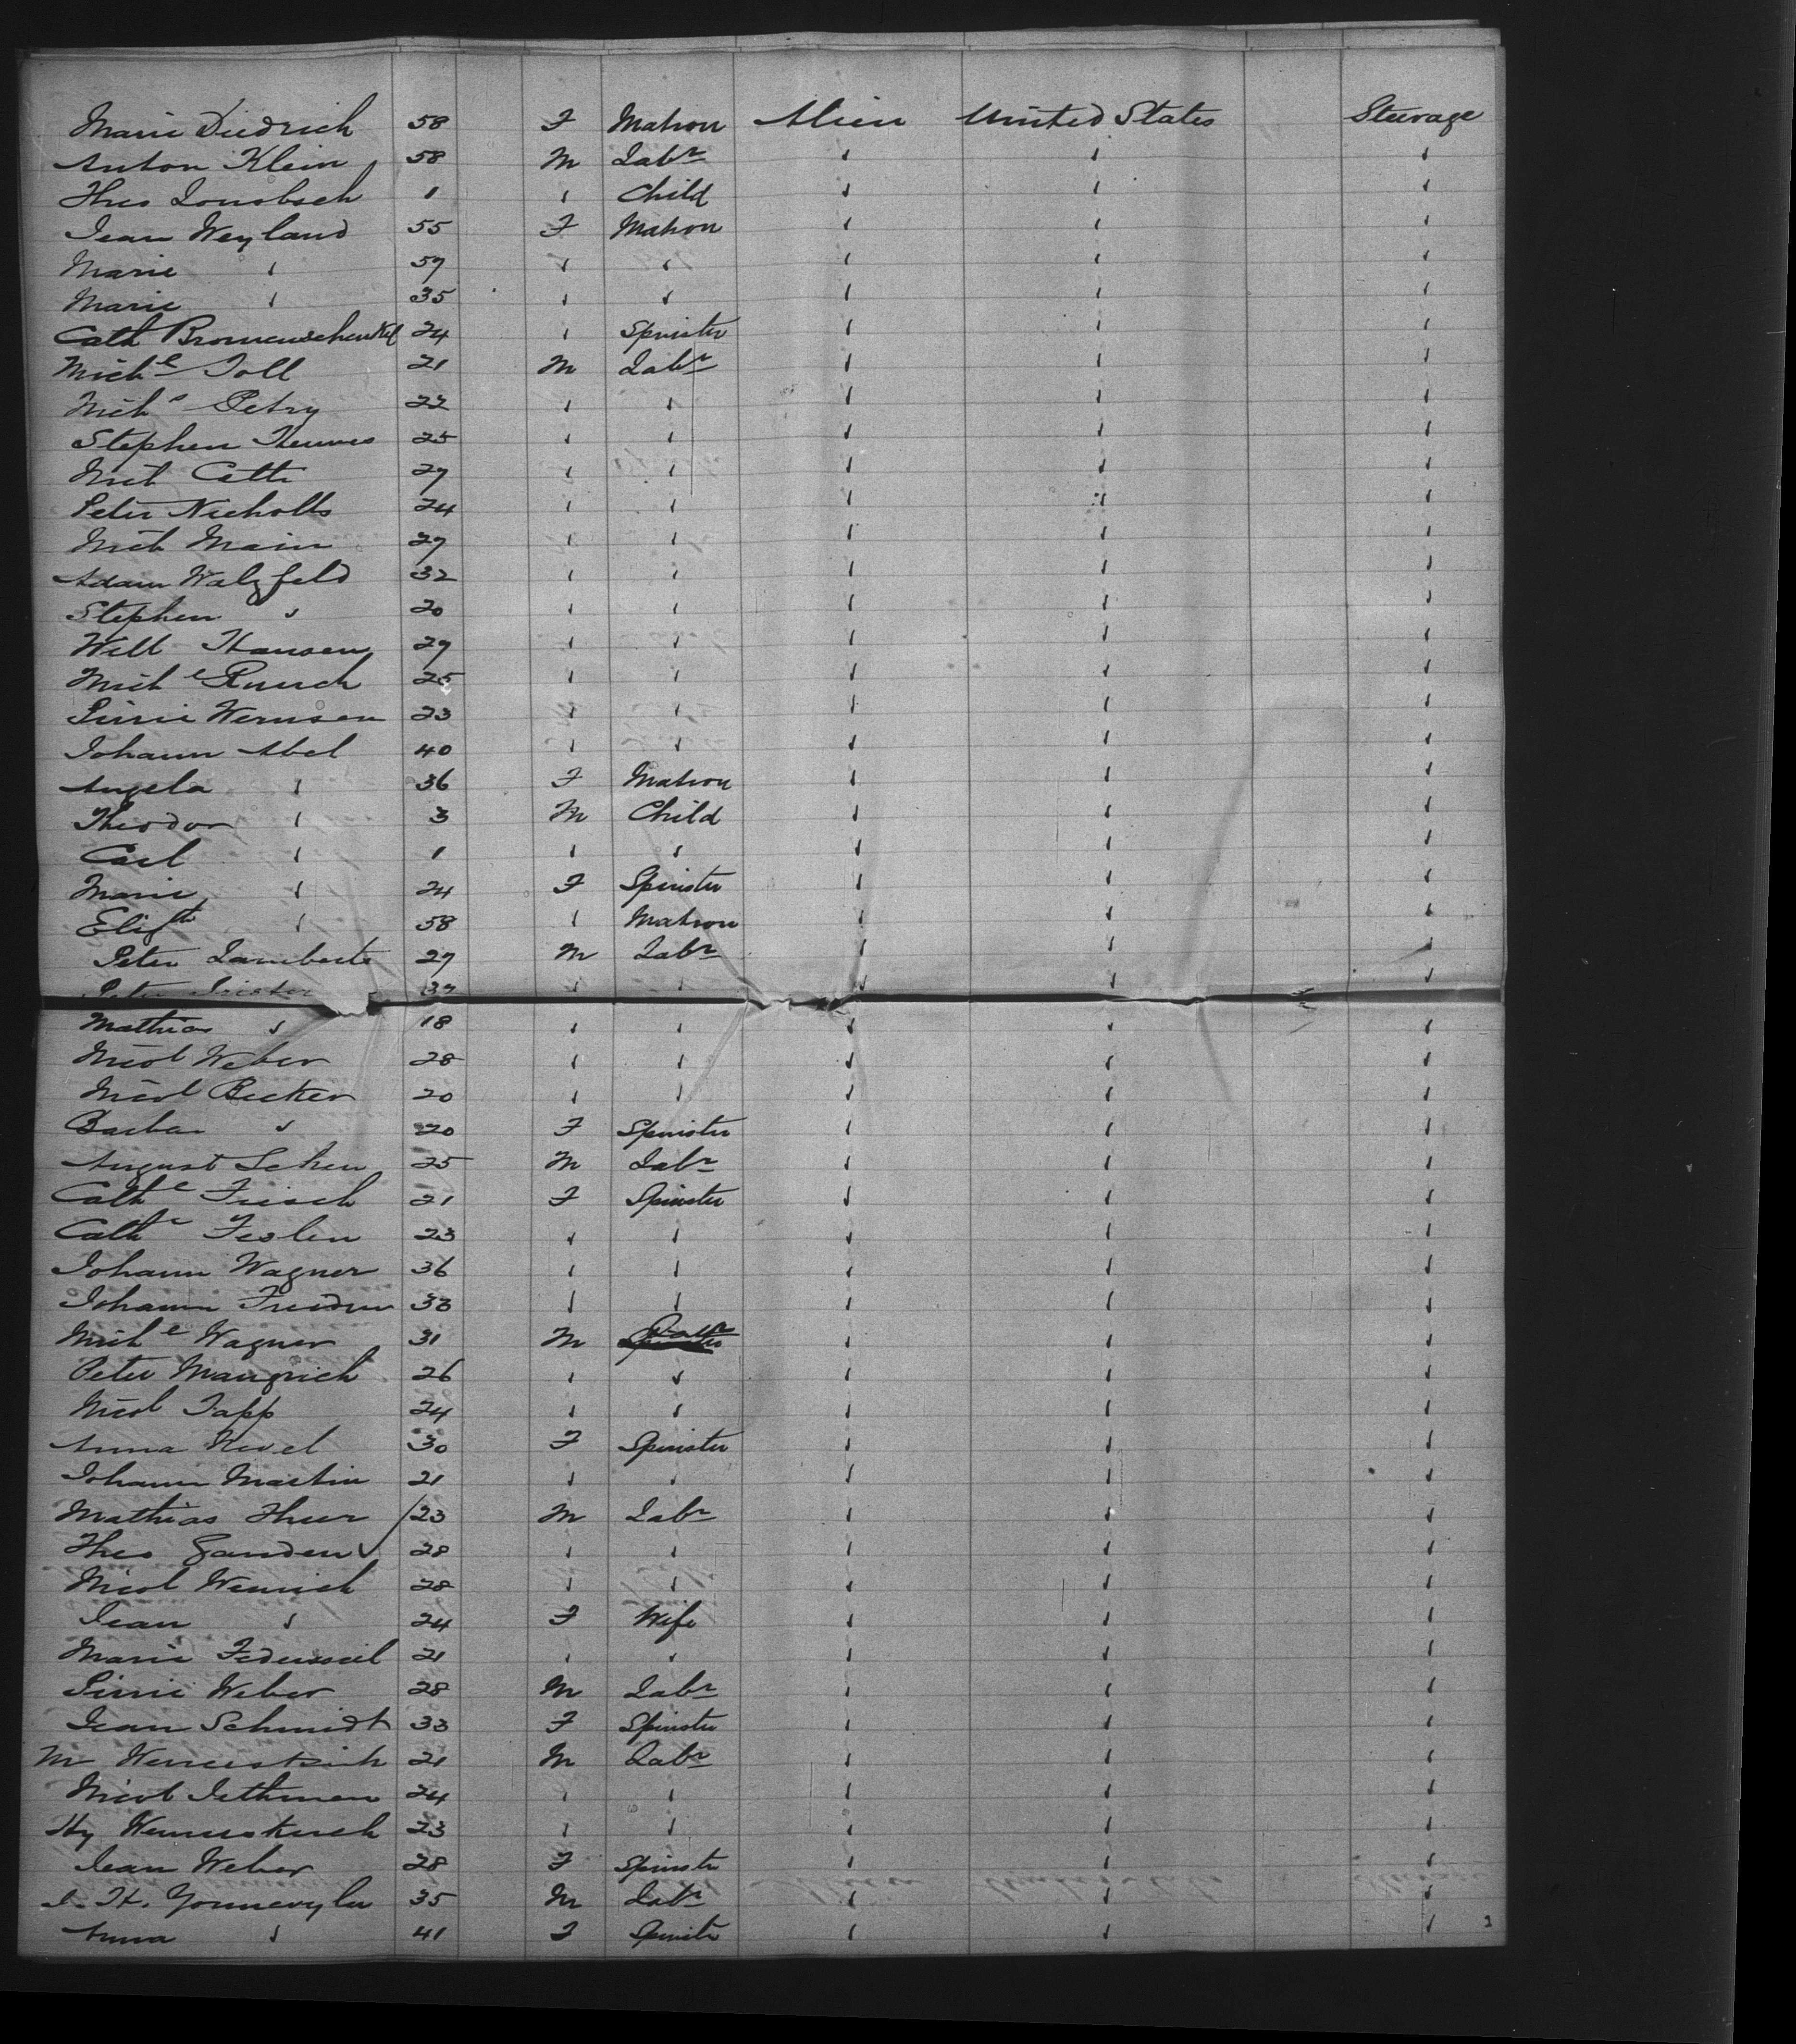 Marie Diedrich 58 F Matron Alien United States Steerage
Anton Klein 58 M Labr ✓ ✓ ✓
Theo Lonsbsch 1 ✓ Child ✓ ✓ ✓
Jean Weyland 55 F Matron ✓ ✓ ✓
Marie ✓ 59 ✓ ✓ ✓ ✓ ✓
Marie ✓ 35 ✓ ✓ ✓ ✓ ✓
Cath Bromenschenkel 24 ✓ Spinster ✓ ✓ ✓
Miche Toll 21 M Labr ✓ ✓ ✓
Petry 22 ✓ ✓ ✓ ✓ ✓
Stephen 25 ✓ ✓ ✓ ✓ ✓
Mich 27 ✓ ✓ ✓ ✓ ✓
Peter Nicholls 24 ✓ ✓ ✓ ✓ ✓
Main 27 ✓ ✓ ✓ ✓ ✓
Adam Walzfeld 32 ✓ ✓ ✓ ✓ ✓
Stephen ✓ 20 ✓ ✓ ✓ ✓ ✓
Will Hansen 29 ✓ ✓ ✓ ✓ ✓
Miche 25 ✓ ✓ ✓ ✓ ✓
Wernsen 23 ✓ ✓ ✓ ✓ ✓
Johann Abel 40 ✓ ✓ ✓ ✓ ✓
Angela ✓ 36 F Matron ✓ ✓ ✓
Theodor ✓ 3 M Child ✓ ✓ ✓
Carl ✓ 1 ✓ ✓ ✓ ✓ ✓
Marie ✓ 24 F Spinster ✓ ✓ ✓
Elizth ✓ 58 ✓ Matron ✓ ✓ ✓
Peter Lamberts 27 M Labr ✓ ✓ ✓
Peter ✓ ✓ ✓ ✓ ✓
Mathias ✓ 18 ✓ ✓ ✓ ✓ ✓
Nicol Weber 28 ✓ ✓ ✓ ✓ ✓
Nicol Becker 20 ✓ ✓ ✓ ✓ ✓
Barba ✓ 20 F Spinster ✓ ✓ ✓
August 25 M Labr ✓ ✓ ✓
Cathe Frisch 21 F Spinster ✓ ✓ ✓
Cathe Feslen 23 ✓ ✓ ✓ ✓ ✓
Johann Wagner 36 ✓ ✓ ✓ ✓ ✓
Johann 33 ✓ ✓ ✓ ✓ ✓
Miche Wagner 31 M Labr ✓ ✓ ✓
Peter Mangrich 26 ✓ ✓ ✓ ✓ ✓
Nicol Tapp 24 ✓ ✓ ✓ ✓ ✓
Anna 30 F Spinster ✓ ✓ ✓
Johann Martin 21 ✓ ✓ ✓ ✓ ✓
Mathias Thur 23 M Labr ✓ ✓ ✓
Theo Ganden ✓ 28 ✓ ✓ ✓ ✓ ✓
Nicol Wenrich 28 ✓ ✓ ✓ ✓ ✓
Jean ✓ 24 F Wife ✓ ✓ ✓
Marie 21 ✓ ✓ ✓ ✓ ✓
Weber 28 M Labr ✓ ✓ ✓
Jean Schmidt 33 F Spinster ✓ ✓ ✓
M 21 M Labr ✓ ✓ ✓
Nicol 24 ✓ ✓ ✓ ✓ ✓
Hy 23 ✓ ✓ ✓ ✓ ✓
Jean Weber 28 F Spinstr ✓ ✓ ✓
J. H. 35 M Labr ✓ ✓ ✓
Anna ✓ 41 F Spinstr ✓ ✓ ✓